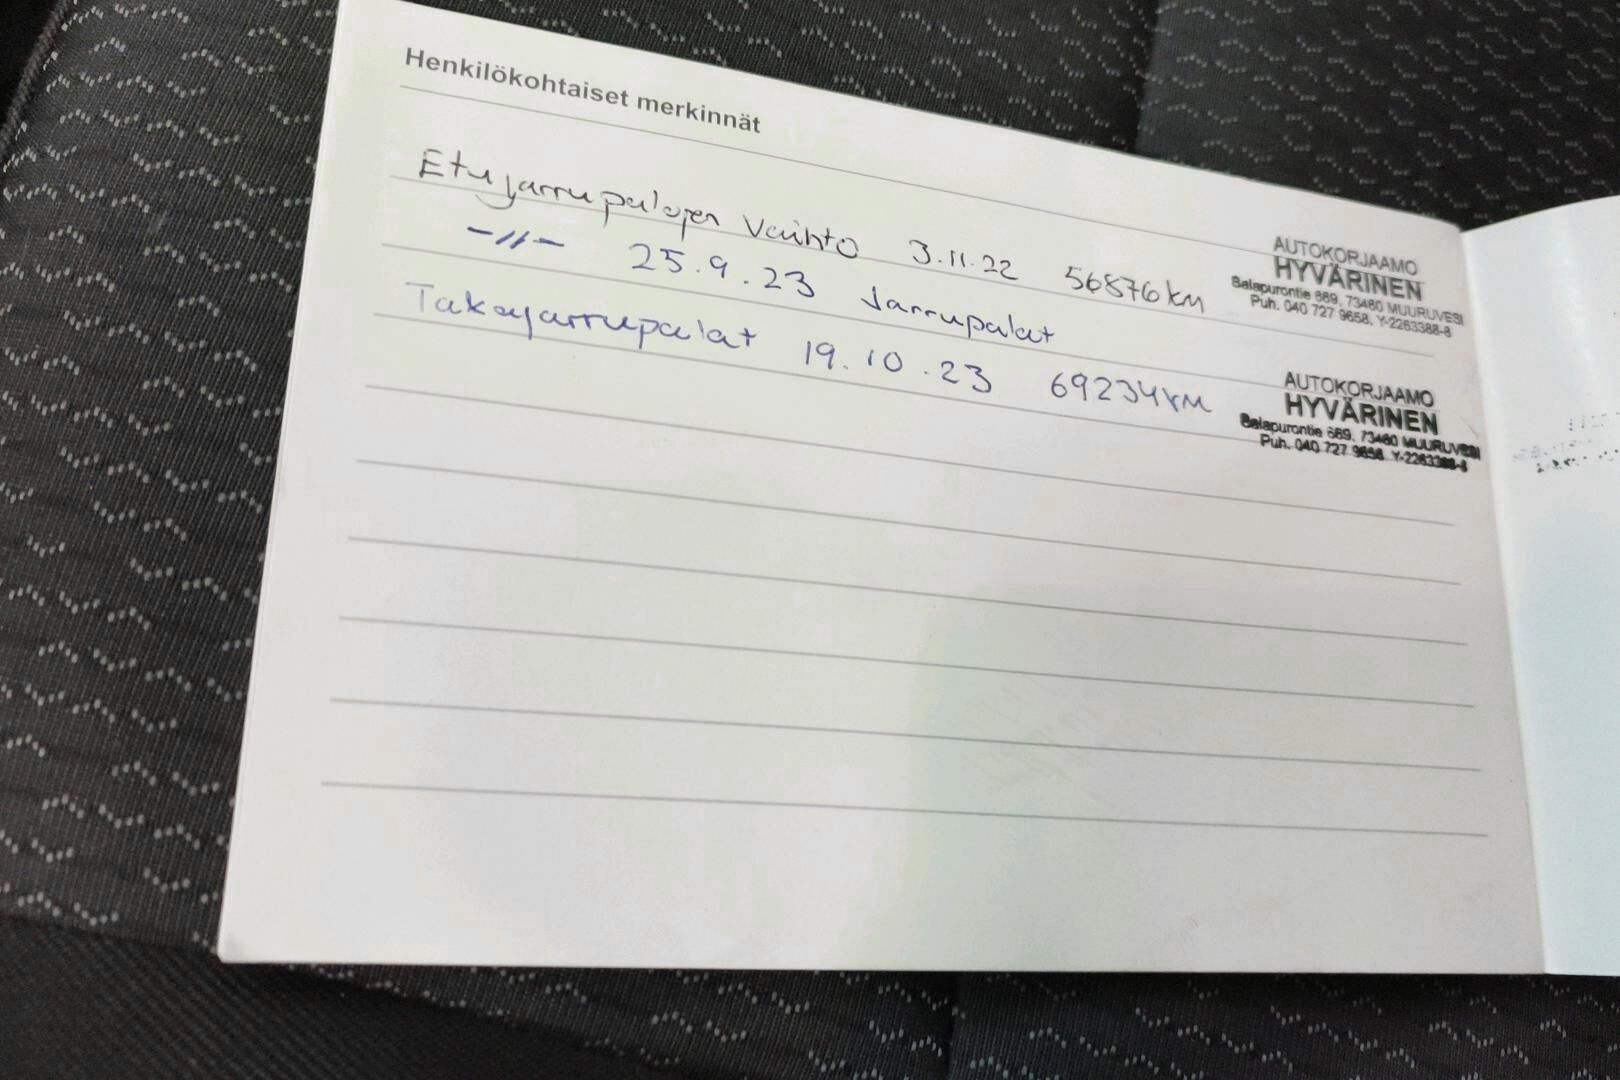 Henkilökohtaiset merkinnät
Etujarrupalojen vaihto 3.11.22 56876 km
-//- 25.9.23 Jarrupalat
Takajarrupalat 19.10.23 69234 km
AUTOKORJAAMO
HYVÄRINEN
Salapurontie 669, 73460 MUURUVESI
Puh. 040 727 9658, Y-2263388-8
AUTOKORJAAMO
HYVÄRINEN
Salapurontie 669, 73460 MUURUVESI
Puh. 040 727 9658, Y-2263388-8